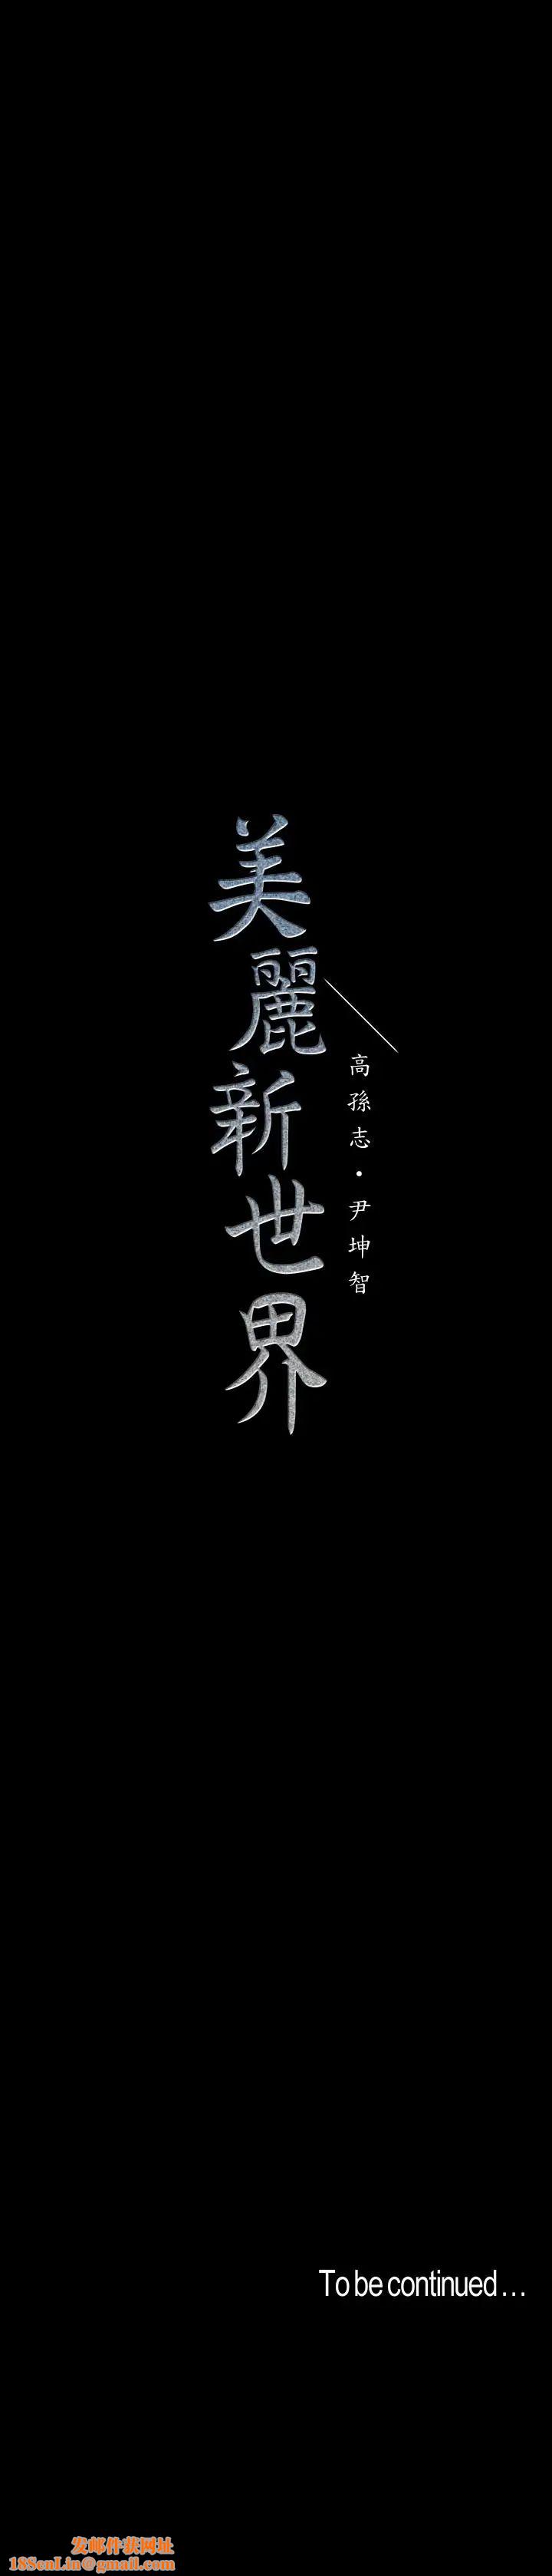 美麗新世界
高孫志·尹坤智
To be continued...
发邮件获网址
18SouLin@gmail.com